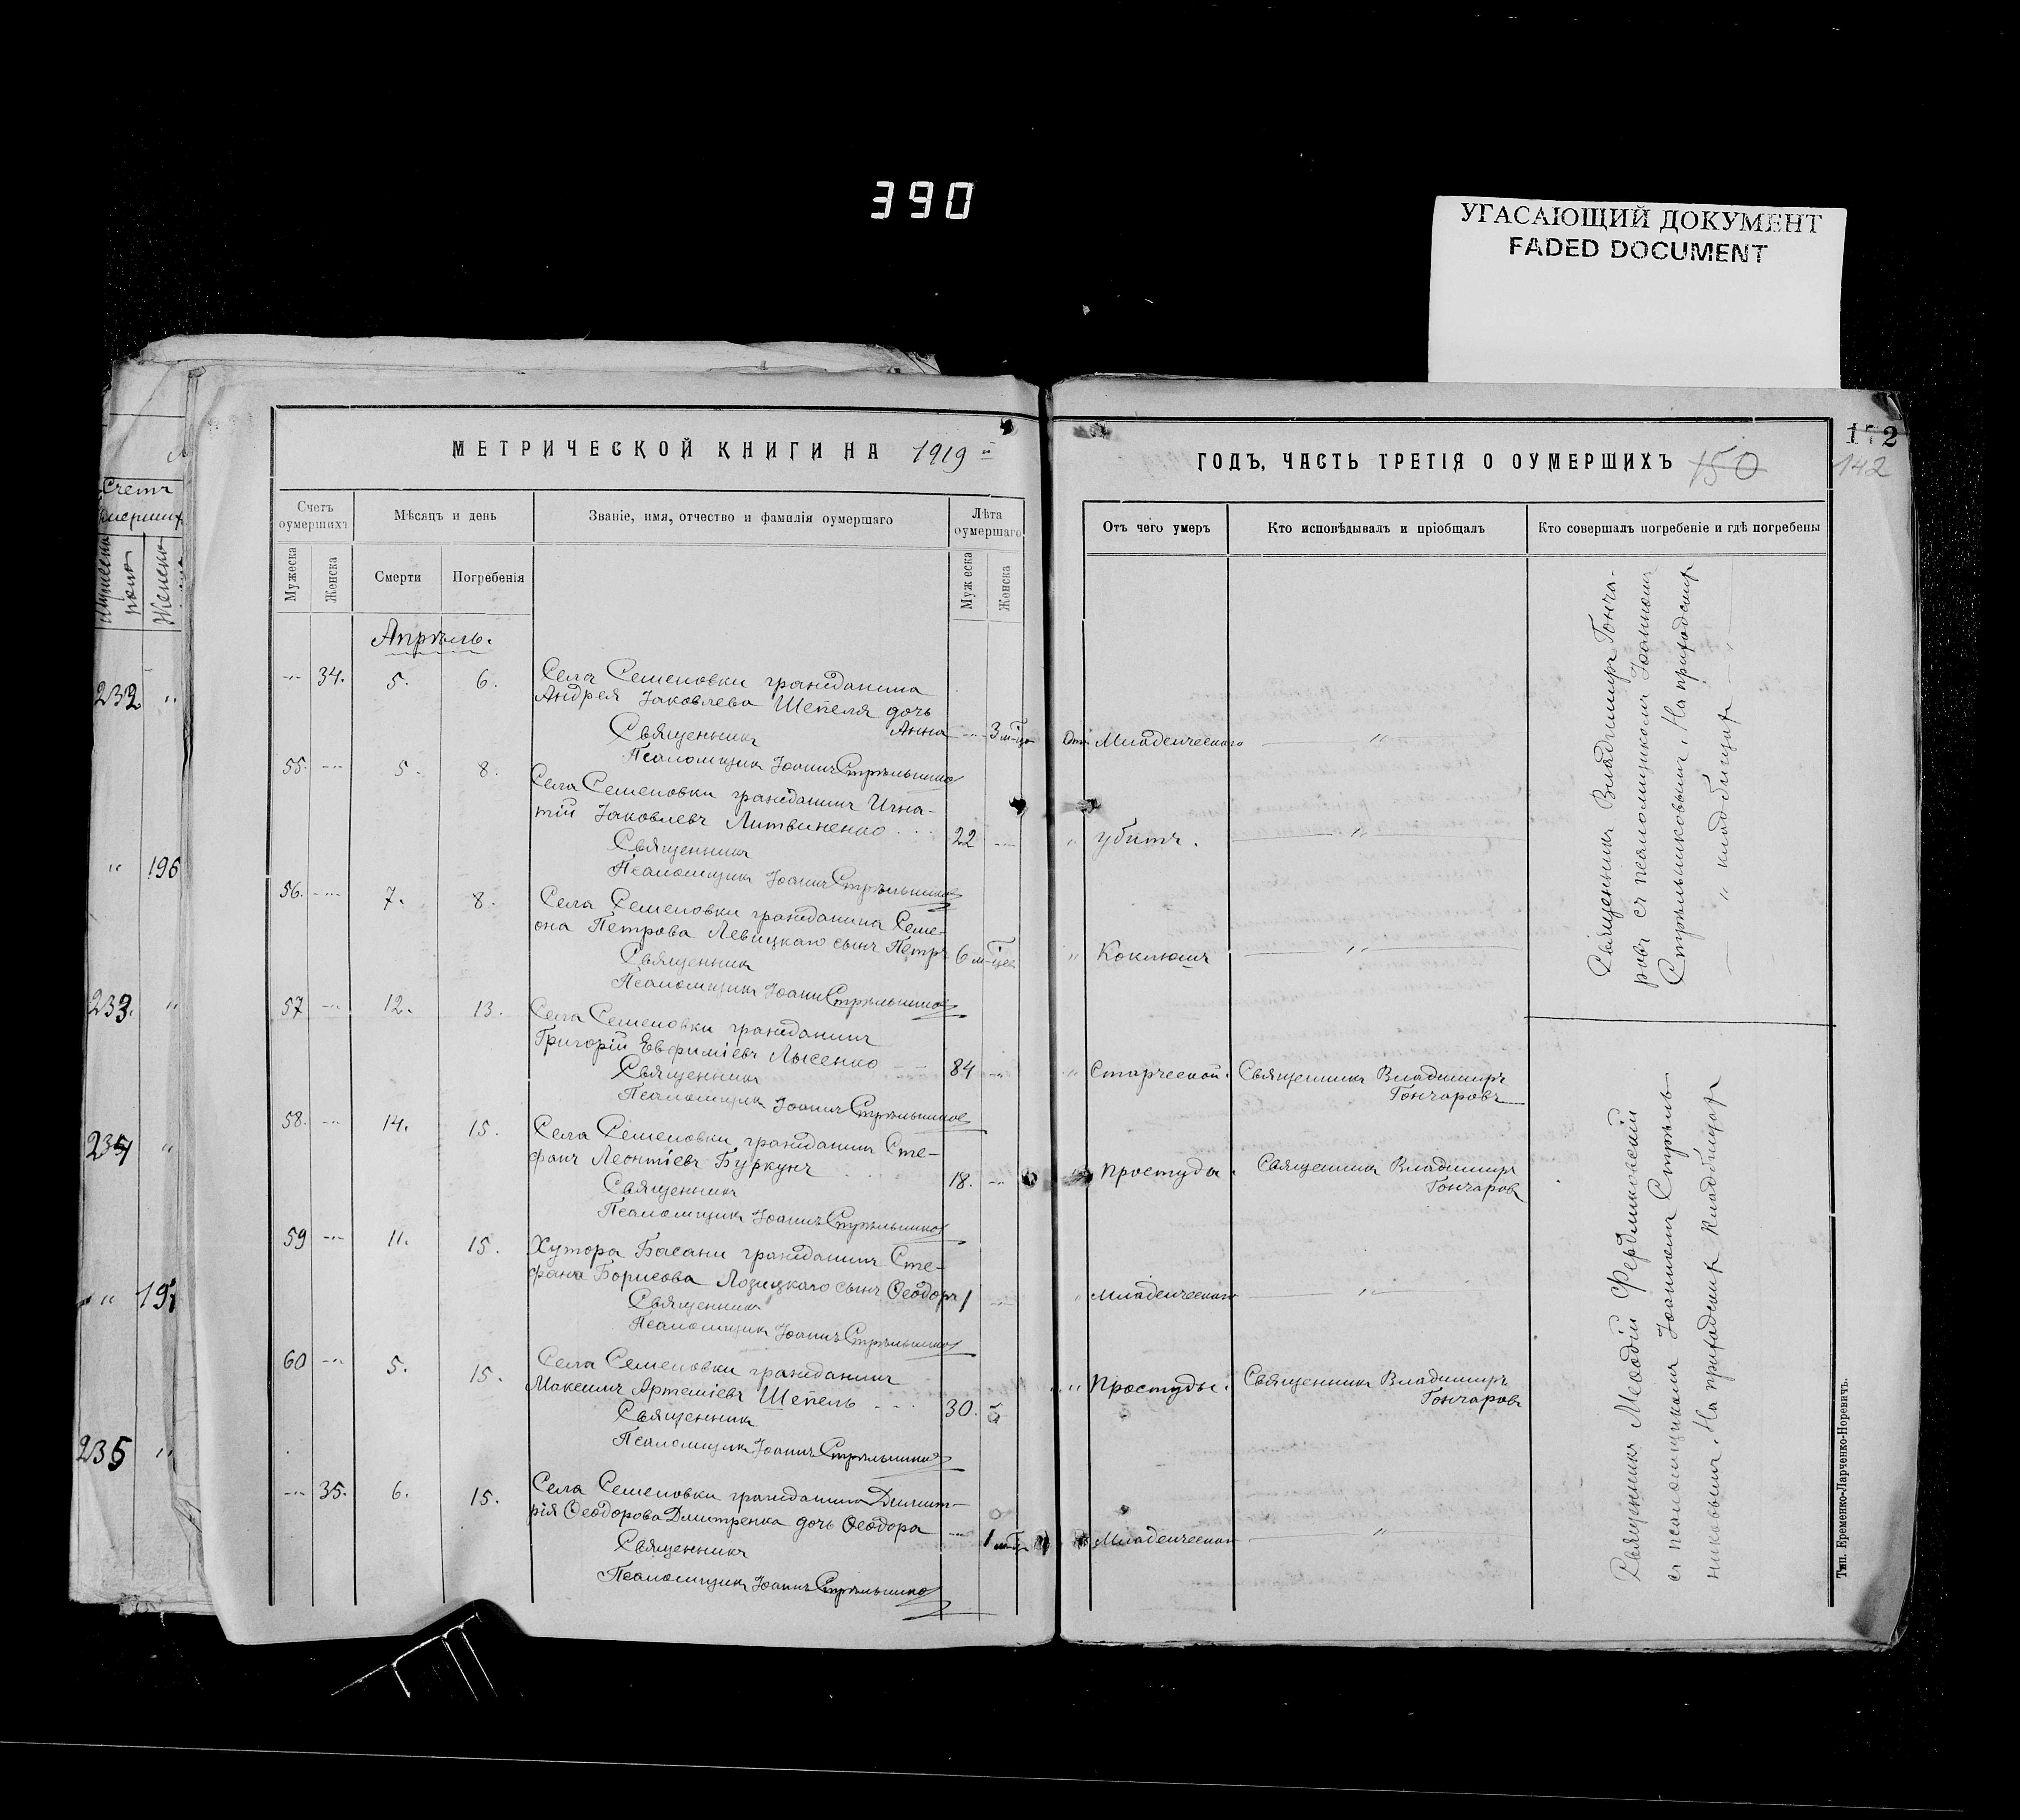 390
УГАСАЮЩИЙ ДОКУМЕНТ
FADED DOCUMENT
МЕТРИЧЕСКОЙ КНИГИ НА 1919 й
Счетъ оумершихъ
Мѣсяцъ и день
Званіе, имя, отчество и фамилія оумершаго
Лѣта оумершаго
Мужеска
Женска
Смерти
Погребенія
Мужеска
Женска
Апрѣль.
34. 5. 6. Села Семеновки гражданина
Андрея Іаковлева Шепеля дочь
Анна 3 м-ца
Священникъ
Псаломщикъ Іоаннъ Стрѣльниковъ
55. 5. 8. Села Семеновки гражданинъ Игна-
тій Іаковлевъ Литвиненко 22
Священникъ
Псаломщикъ Іоаннъ Стрѣльниковъ
56. 7. 8. Села Семеновки гражданина Семе-
она Петрова Левицкаго сынъ Петръ 6 м-цев
Священникъ
Псаломщикъ Іоаннъ Стрѣльниковъ
57 12. 13. Села Семеновки гражданинъ
Григорій Евфиміевъ Лысенко 84
Священникъ
Псаломщикъ Іоаннъ Стрѣльниковъ
58. 14. 15. Села Семеновки гражданинъ Сте-
фанъ Леонтіевъ Буркунъ 18.
Священникъ
Псаломщикъ Іоаннъ Стрѣльниковъ
59 11. 15. Хутора Басани гражданина Сте-
фана Борисова Лозицкаго сынъ Ѳеодоръ 1
Священникъ
Псаломщикъ Іоаннъ Стрѣльниковъ
60 5. 15. Села Семеновки гражданинъ
Максимъ Артеміевъ Шепель 30.
Священникъ
Псаломщикъ Іоаннъ Стрѣльниковъ
35. 6. 15. Села Семеновки гражданина Димит-
рія Ѳеодорова Дмитренка дочь Ѳеодора 1 м-ц
Священникъ
Псаломщикъ Іоаннъ Стрѣльниковъ
ГОДЪ, ЧАСТЬ ТРЕТІЯ О ОУМЕРШИХЪ 150
172
142
Отъ чего умеръ
Кто исповѣдывалъ и пріобщалъ
Кто совершалъ погребеніе и гдѣ погребены
Отъ Младенческаго
" убитъ.
" Коклюшъ
" Старческой. Священникъ Владимиръ
Гончаровъ
Простуды. Священникъ Владимиръ
Гончаровъ
" Младенческаго
" Простуды. Священникъ Владимиръ
Гончаровъ
Младенческаго
Священникъ Владимиръ Гонча-
ровъ съ псаломщикомъ Іоанномъ
Стрѣльниковымъ. На приходскомъ
" кладбищѣ
Священникъ Меѳодій Фердиковскій
съ псаломщикомъ Іоанномъ Стрѣль-
никовымъ. На приходскомъ кладбищѣ
Тип. Еременко-Ларченко-Норевичъ.
Счетъ
Мужеска
Женска
232 "
" 196
233. "
234 "
" 197
235 "